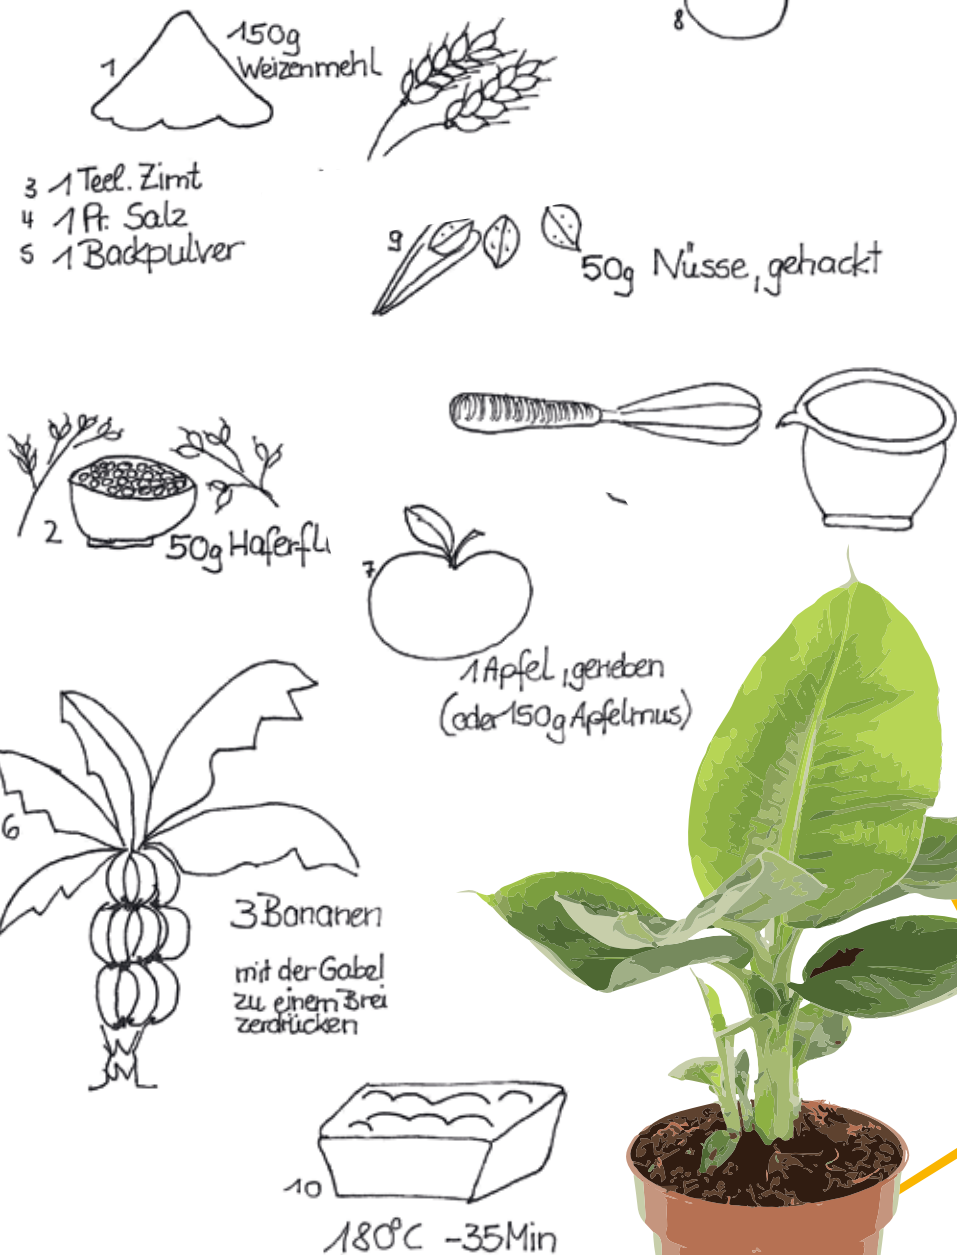 8
1 150g
Weizenmehl
3 1 Teel. Zimt
4 1 Pr. Salz
5 1 Backpulver
9
50g Nüsse, gehackt
2 50g Haferfl
7
1 Apfel, gerieben
(oder 150g Apfelmus)
6
3 Bananen
mit der Gabel
zu einem Brei
zerdrücken
10
180°C -35Min